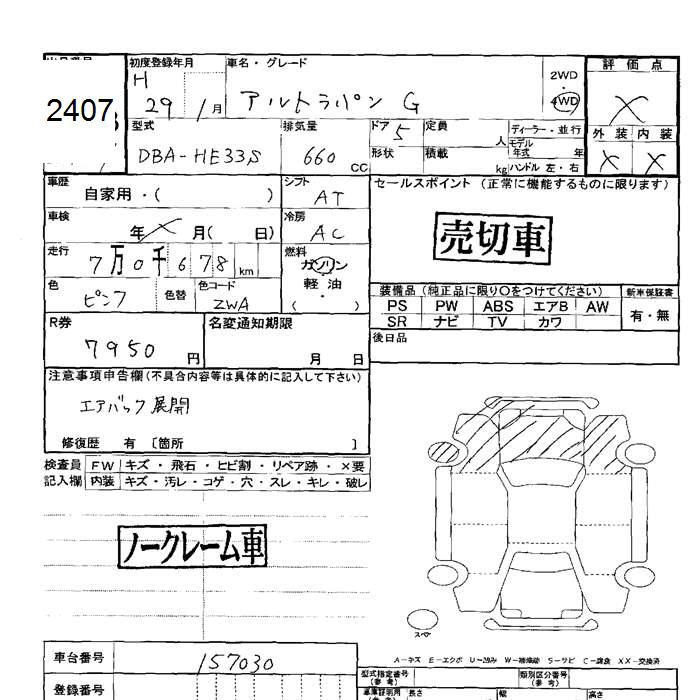 2407
初度登録年月 車名・グレード 2WD 評価点
H 29 1月 アルトラパン G 4WD X
型式 排気量 ドア 5 定員 人 ディーラー・並行 外装 内装
DBA-HE33S 660 CC 形状 積載 kg モデル年式 年 ハンドル 左・右 X X
車歴 自家用・( ) シフト AT セールスポイント (正常に機能するものに限ります)
車検 年 X 月( 日) 冷房 AC 売切車
走行 7万0千678km 燃料 ガソリン 軽油・( )
色 ピンク 色替 色コード ZWA 装備品(純正品に限り○をつけてください) 新車保証書
PS PW ABS エアB AW 有・無
SR ナビ TV カワ
R券 7950円 名変通知期限 月 日 後日品
注意事項申告欄(不具合内容等は具体的に記入して下さい)
エアバック展開
修復歴 有 [箇所 ]
検査員 FW キズ・飛石・ヒビ割・リペア跡・×要
記入欄 内装 キズ・汚レ・コゲ・穴・スレ・キレ・破レ
ノークレーム車
スペア
A-キズ E-エクボ U-凹み W-補修跡 S-サビ C-腐食 XX-交換済
車台番号 157030 型式指定番号(参考) 類別区分番号(参考)
登録番号 長さ 幅 高さ